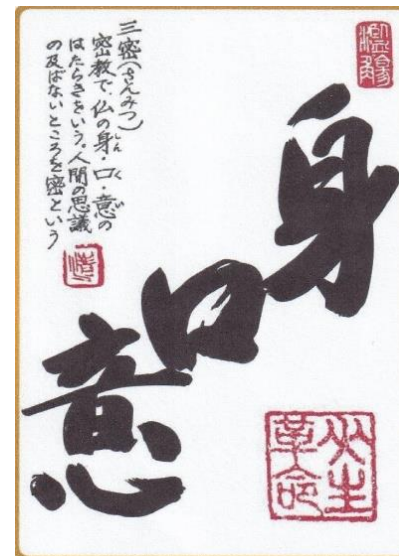 身
口
意
三密(さんみつ)
密教で、仏の身・口・意の
しん
く
い
はたらきをいう。人間の思議
の及ばないところを密という
革命